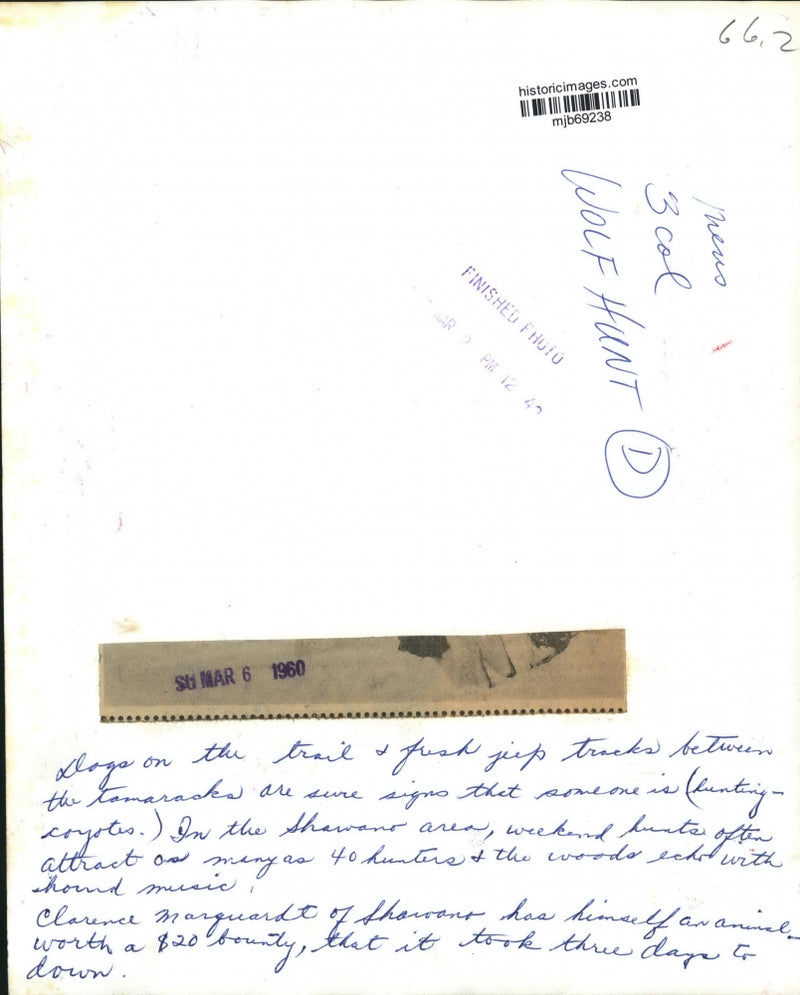 66.2
historicimages.com
mjb69238
news
3 col
WOLF HUNT
D
FINISHED PHOTO
MAR 2 PM 12
SU MAR 6 1960
Dogs on the trail & fresh jeep tracks between
the tamaracks are sure signs that someone is (hunting
coyotes.) In the Shawano area, weekend hunts often
attract as many as 40 hunters & the woods echo with
hound music.
Clarence Marquardt of Shawano has himself an animal
worth a $20 bounty, that it took three days to
down.